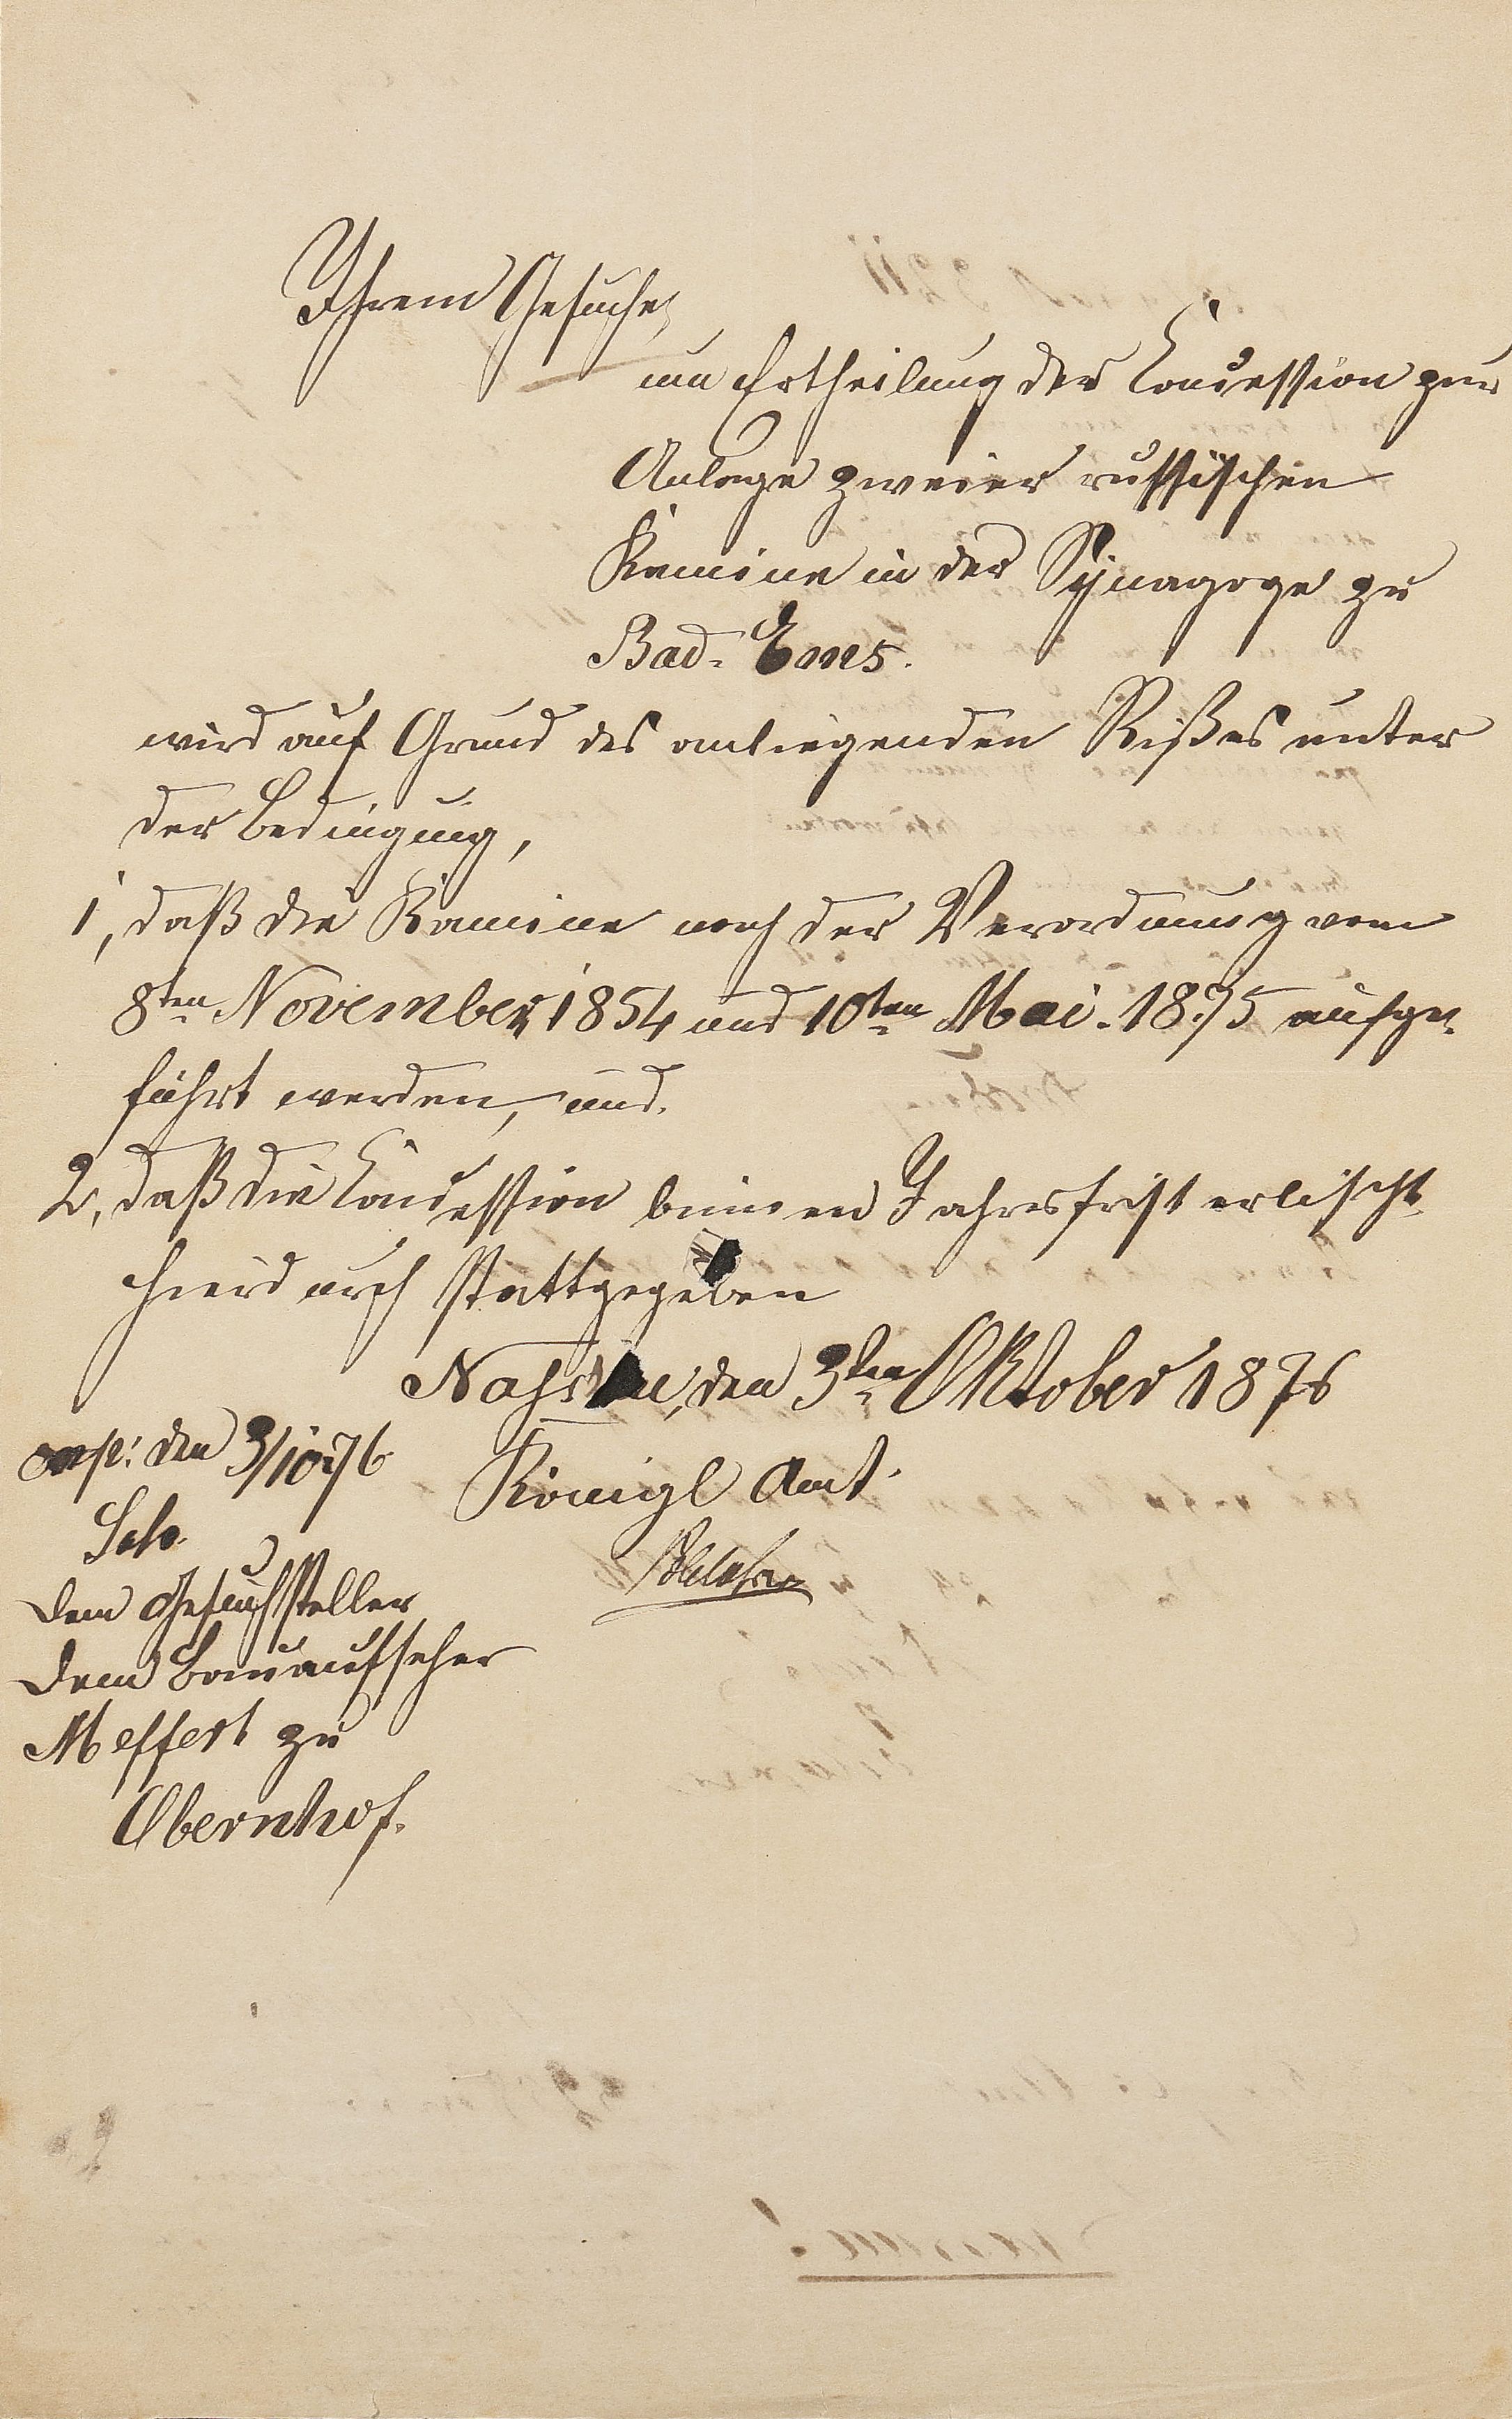 Ihrem Gesuche,
um Ertheilung der Concession zur
Anlage zweier russischen
Kamine in der Synagoge zu
Bad-Ems.
wird auf Grund des anliegenden Rißes unter
der Bedingung,
1, daß die Kamine nach der Verordnung vom
8ten November 1854 und 10ten Mai. 1875 aufge-
führt werden, und.
2, daß die Concession binnen Jahresfrist erlischt
hierdurch stattgegeben
den 3ten Oktober 1876
exp: den 3/10.76
Königl Amt.
Sch.
Dem Gesuchsteller
Dem Bauaufseher
Meffert zu
Obernhof.